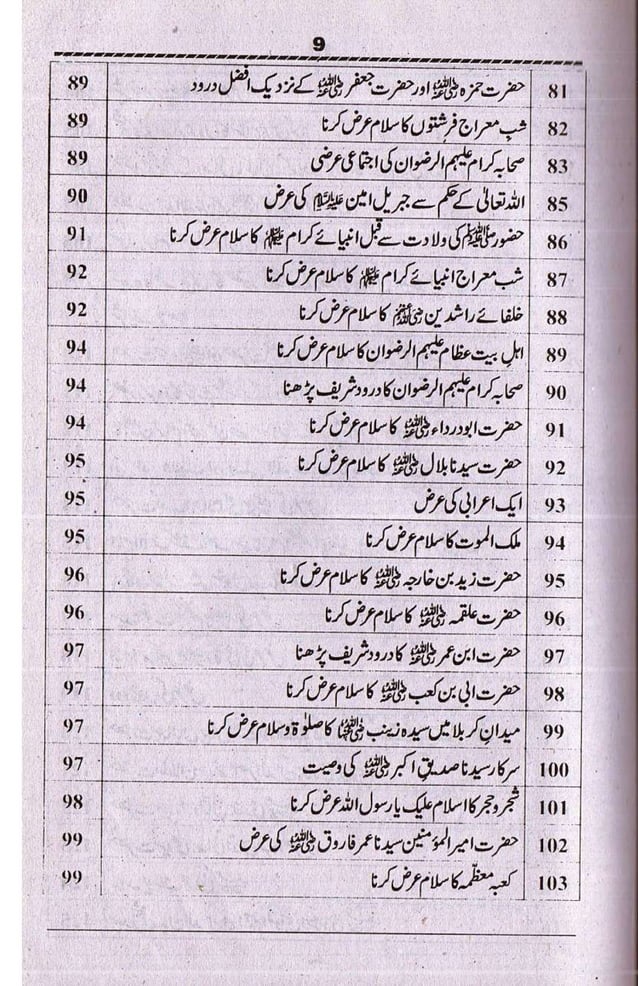 9
81 حضرت حمزہ رضی اللہ عنہ اور حضرت جعفر رضی اللہ عنہ کے نزدیک افضل درود 89
82 شبِ معراج فرشتوں کا سلام عرض کرنا 89
83 صحابہ کرام علیہم الرضوان کی اجتماعی عرضی 89
85 اللہ تعالیٰ کے حکم سے جبریل امین علیہ السلام کی عرض 90
86 حضور ﷺ کی ولادت سے قبل انبیائے کرام علیہم السلام کا سلام عرض کرنا 91
87 شب معراج انبیائے کرام علیہم السلام کا سلام عرض کرنا 92
88 خلفائے راشدین رضی اللہ عنہم کا سلام عرض کرنا 92
89 اہلِ بیت عظام علیہم الرضوان کا سلام عرض کرنا 94
90 صحابہ کرام علیہم الرضوان کا درود شریف پڑھنا 94
91 حضرت ابودرداء رضی اللہ عنہ کا سلام عرض کرنا 94
92 حضرت سیدنا بلال رضی اللہ عنہ کا سلام عرض کرنا 95
93 ایک اعرابی کی عرض 95
94 ملک الموت کا سلام عرض کرنا 95
95 حضرت زید بن خارجہ رضی اللہ عنہ کا سلام عرض کرنا 96
96 حضرت علقمہ رضی اللہ عنہ کا سلام عرض کرنا 96
97 حضرت ابن عمر رضی اللہ عنہ کا درود شریف پڑھنا 97
98 حضرت ابی بن کعب رضی اللہ عنہ کا سلام عرض کرنا 97
99 میدانِ کربلا میں سیدہ زینب رضی اللہ عنہا کا صلوٰۃ وسلام عرض کرنا 97
100 سرکار سیدنا صدیقِ اکبر رضی اللہ عنہ کی وصیت 97
101 شجر و حجر کا اسلام علیک یارسول اللہ عرض کرنا 98
102 حضرت امیر المؤمنین سیدنا عمر فاروق رضی اللہ عنہ کی عرض 99
103 کعبہ معظّمہ کا سلام عرض کرنا 99